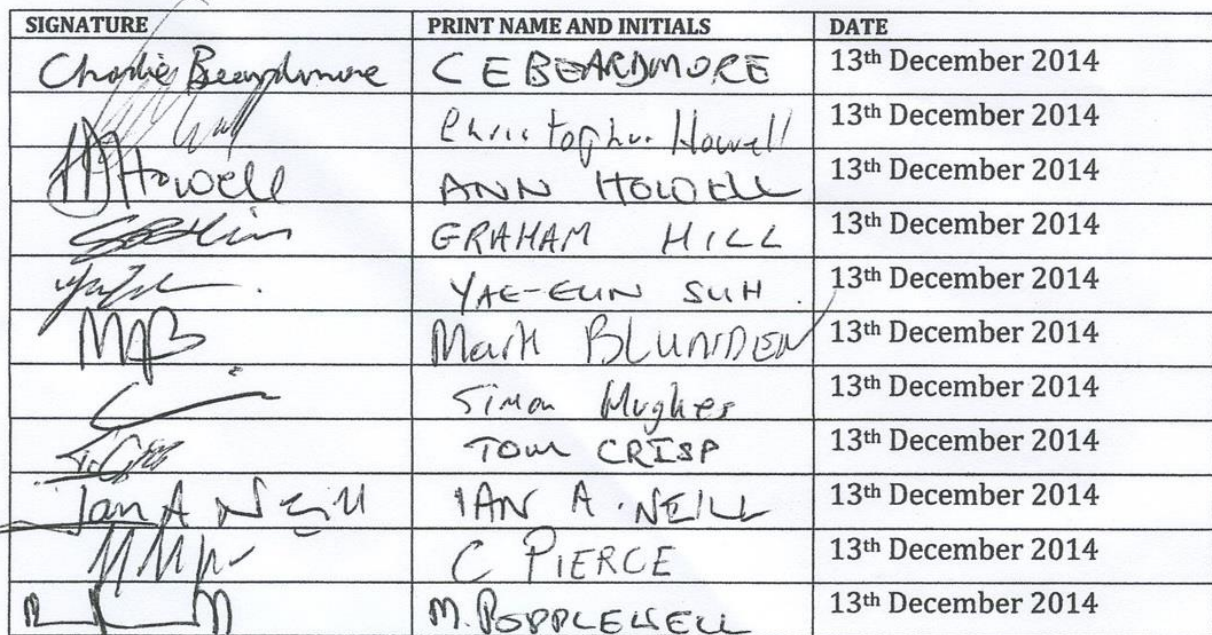 SIGNATURE PRINT NAME AND INITIALS DATE
Charlie Beardmore C E BEARDMORE 13th December 2014
Christopher Howell 13th December 2014
Howell ANN HOWELL 13th December 2014
GRAHAM HILL 13th December 2014
YAE-EUN SUH. 13th December 2014
MAB Mark BLUNDEN 13th December 2014
Simon Hughes 13th December 2014
TOM CRISP 13th December 2014
Ian A Neill IAN A. NEILL 13th December 2014
C PIERCE 13th December 2014
M. POPPLEWELL 13th December 2014